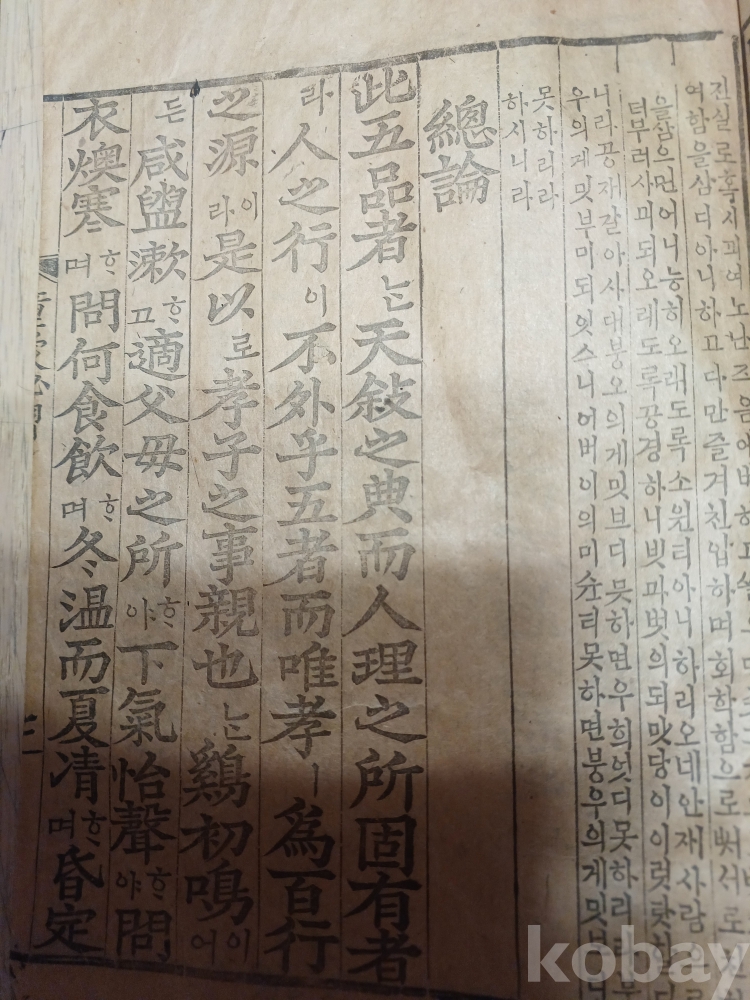 진실로혹시
여함을삼디아니하고다만즐겨친압하며회학함으로써서로
을삼으면어니능히오래도록소원티아니하리오녜안재사람으로
텨부러사괴되오래도록공경하니벗과벗의되맛당이이럿
니라공재갈아사대붕우의게밋브디못하면우희엇디못하리
우의게밋부미되잇스니어버이의슌티못하면붕우의게밋
못하리라
하시니라
總論
此五品者ᄂᆞᆫ天敍之典而人理之所固有者
라人之行이不外乎五者而唯孝ㅣ爲百行
之源이라是以로孝子之事親也ᄂᆞᆫ鷄初鳴이어
든咸盥漱ᄒᆞ고適父母之所ᄒᆞ야下氣怡聲ᄒᆞ야問
衣燠寒ᄒᆞ며問何食飮ᄒᆞ며冬温而夏凊ᄒᆞ며昏定
三
kobay